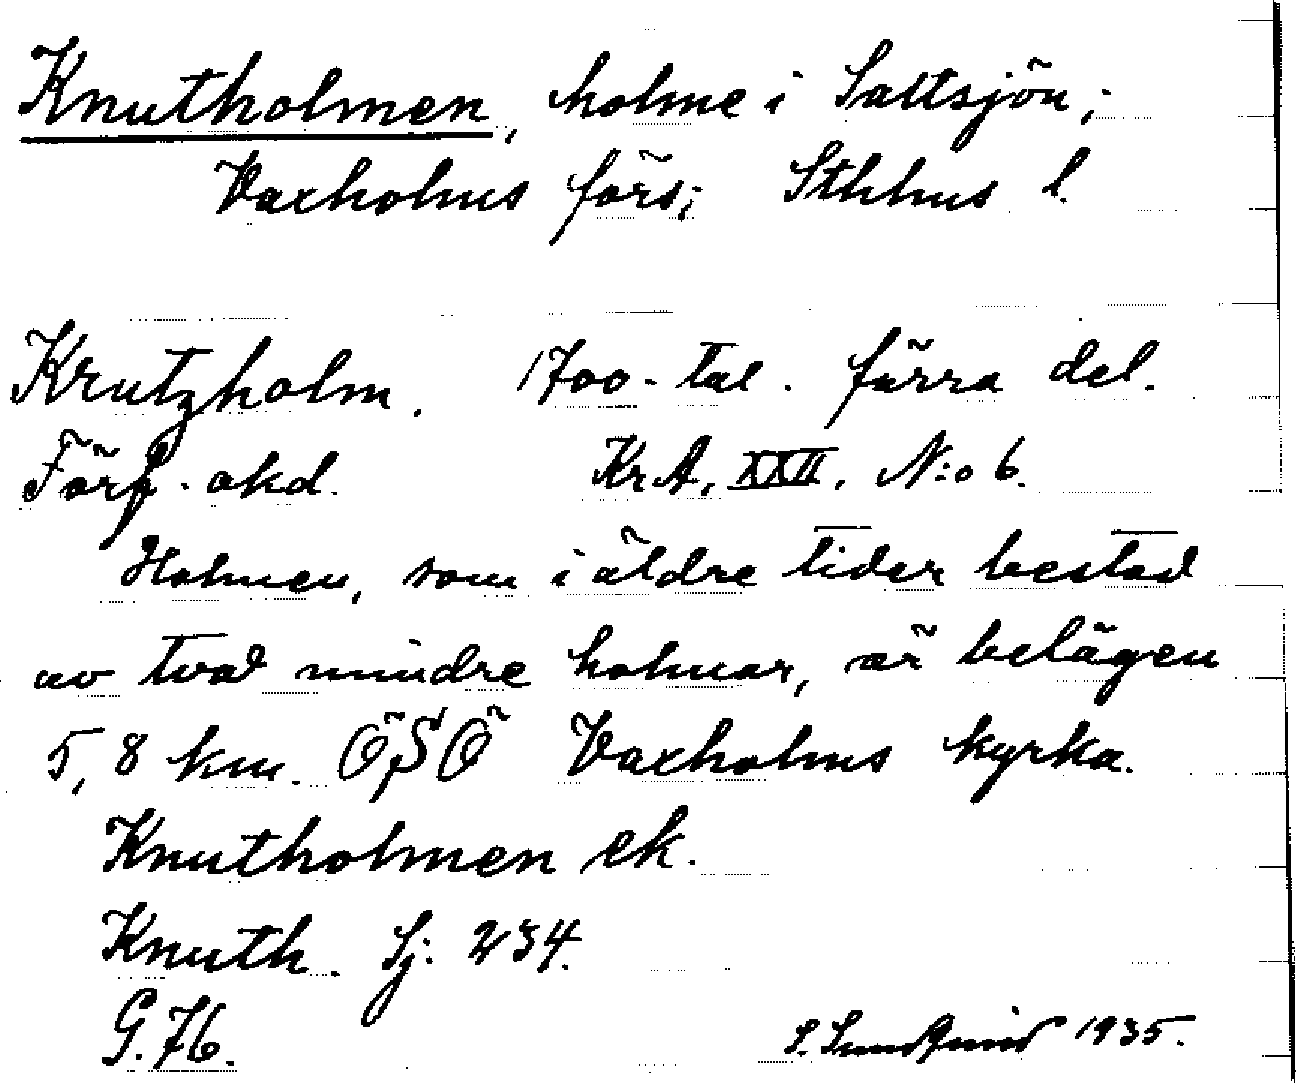 Knutholmen, holme i Saltsjön;
Vaxholms förs; Sthlms l.
Krutzholm. 1700-tal. förra del.
Förf. okd. KrA, XXII, N:o 6.
Holmen, som i äldre tider bestod
av två mindre holmar, är belägen
5,8 km. ÖSÖ Vaxholms kyrka.
Knutholmen ek.
Knuth. Sj. 234.
G. 76. S. Sundqvist 1935.